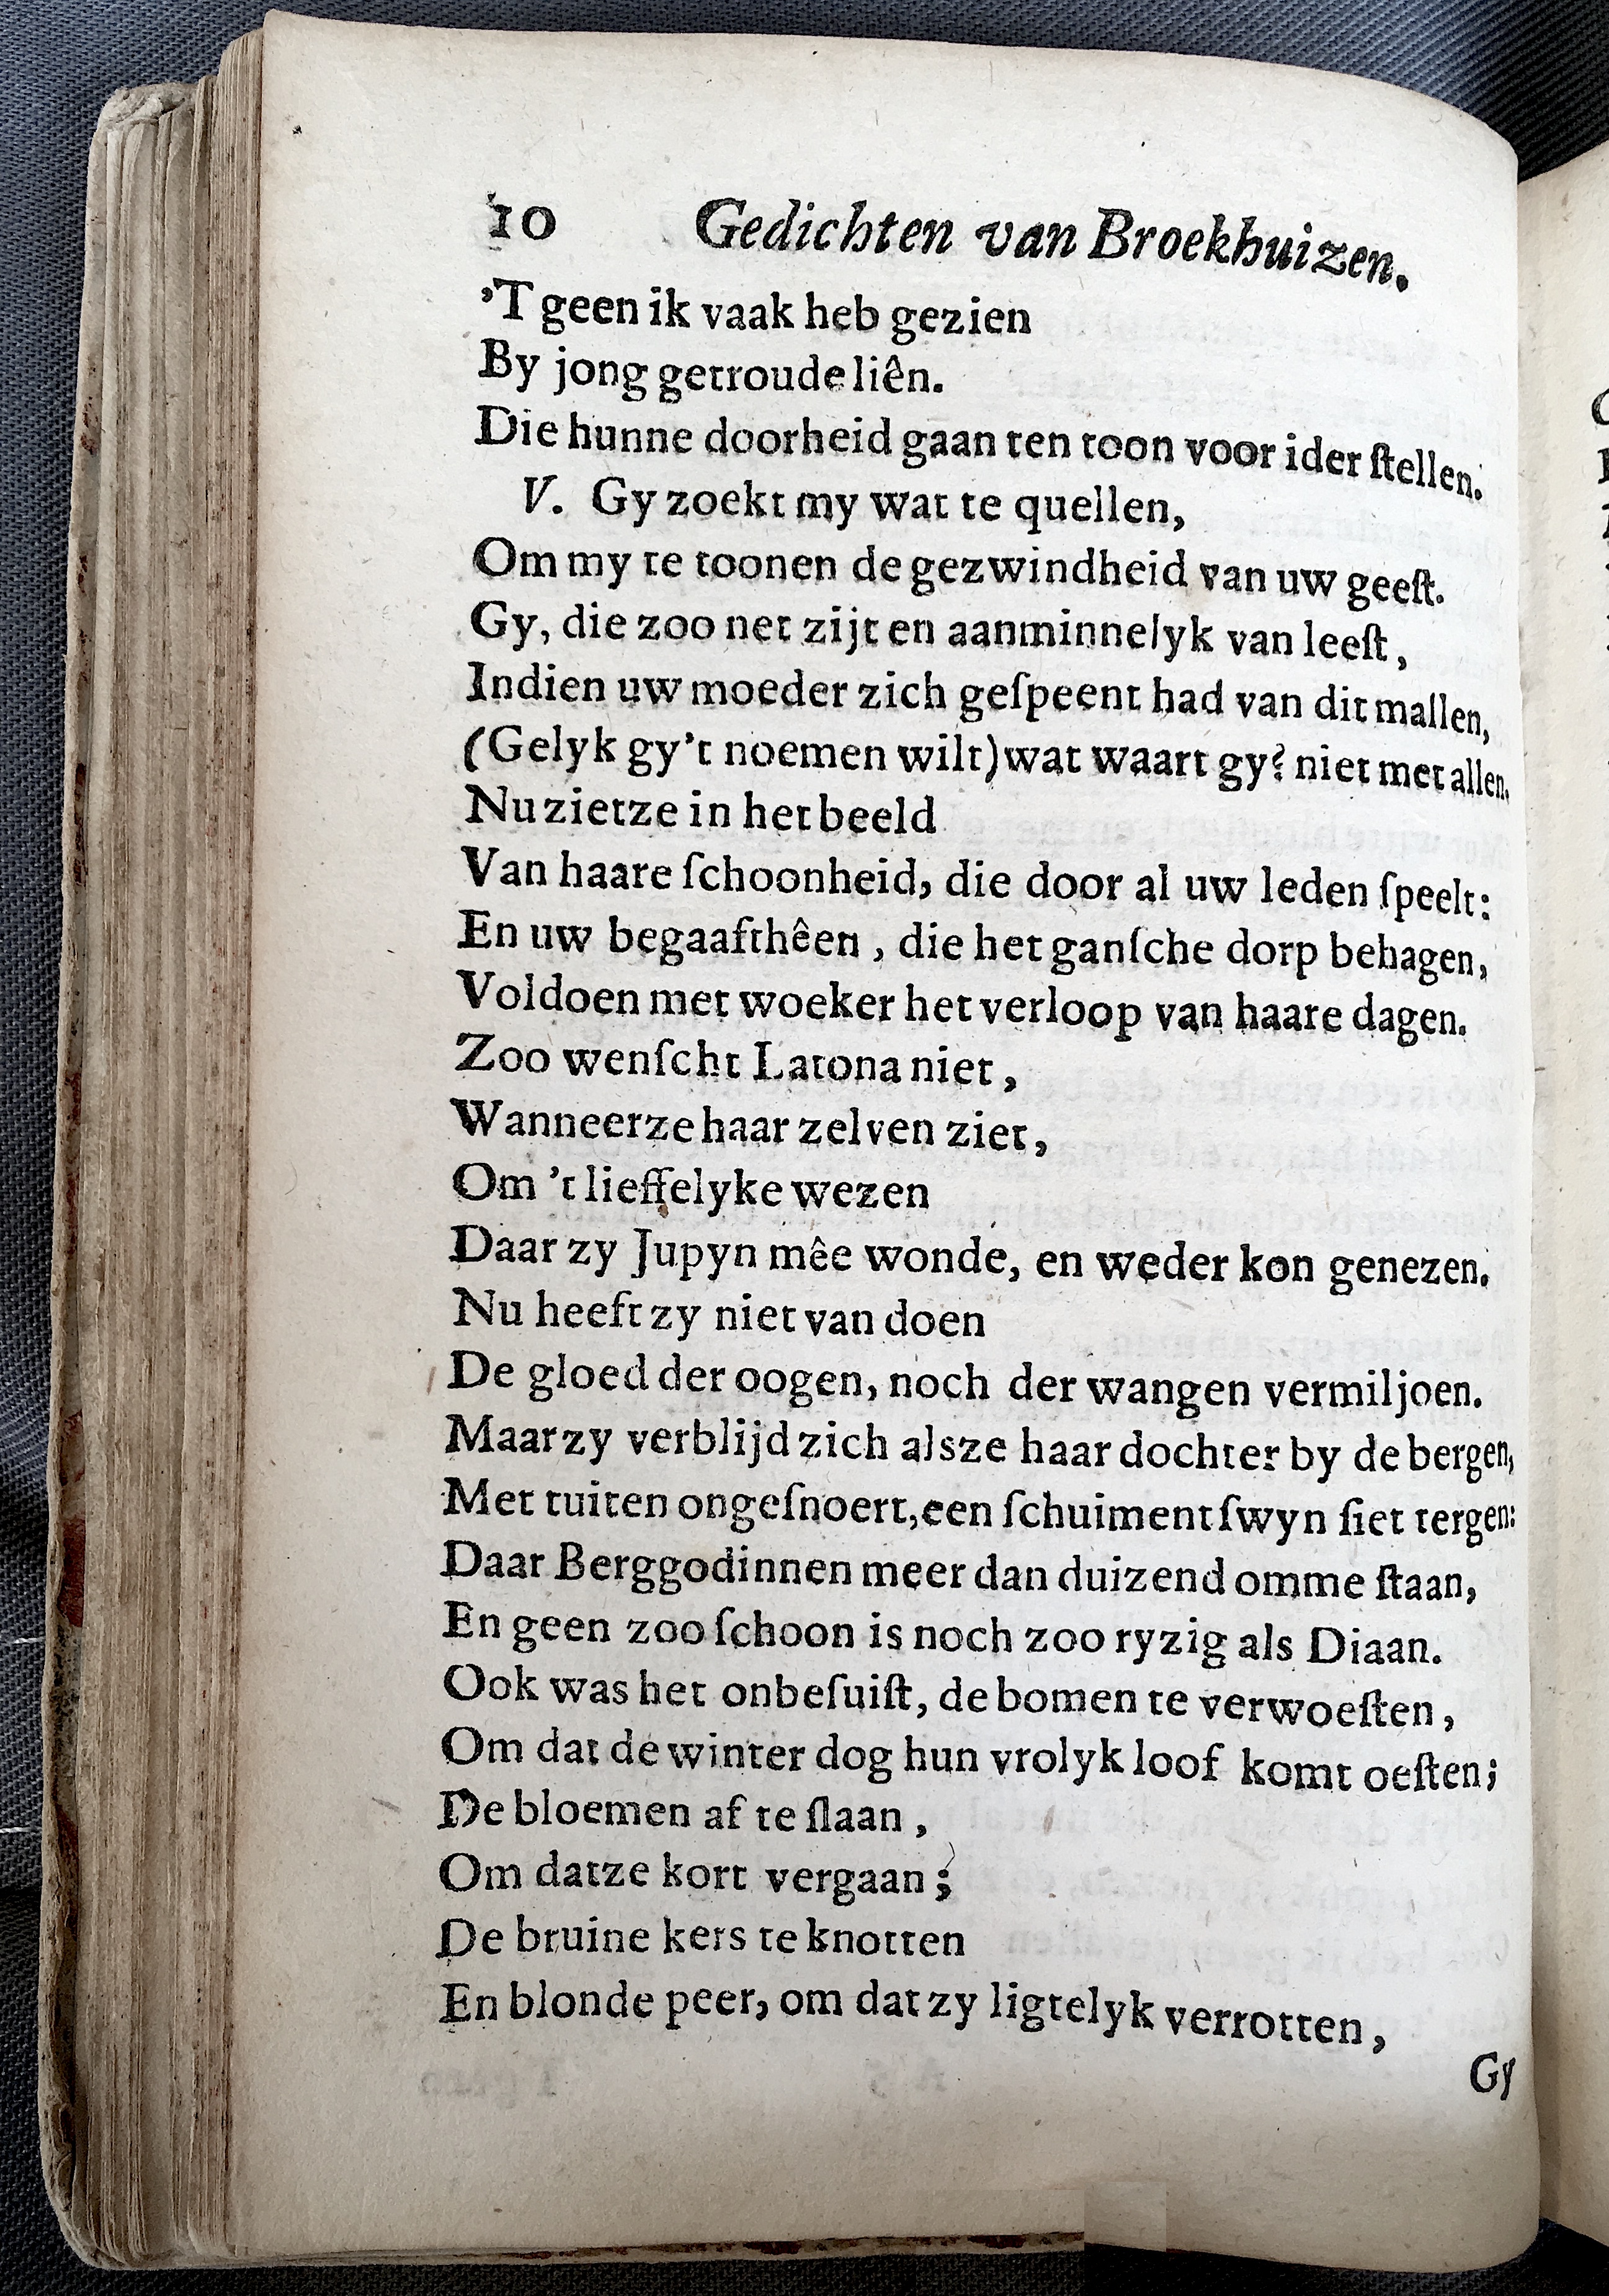 10 Gedichten van Broekhuizen.
’T geen ik vaak heb gezien
By jong getroude liên.
Die hunne doorheid gaan ten toon voor ider ſtellen.
V. Gy zoekt my wat te quellen,
Om my te toonen de gezwindheid van uw geeſt.
Gy, die zoo net zijt en aanminnelyk van leeſt,
Indien uw moeder zich geſpeent had van dit mallen,
(Gelyk gy’t noemen wilt) wat waart gy? niet met allen.
Nu zietze in het beeld
Van haare ſchoonheid, die door al uw leden ſpeelt:
En uw begaafthêen, die het ganſche dorp behagen,
Voldoen met woeker het verloop van haare dagen.
Zoo wenſcht Latona niet,
Wanneerze haar zelven ziet,
Om ’t lieffelyke wezen
Daar zy Jupyn mêe wonde, en weder kon genezen.
Nu heeft zy niet van doen
De gloed der oogen, noch der wangen vermiljoen.
Maar zy verblijd zich alsze haar dochter by de bergen,
Met tuiten ongeſnoert, een ſchuimentſwyn ſiet tergen:
Daar Berggodinnen meer dan duizend omme ſtaan,
En geen zoo ſchoon is noch zoo ryzig als Diaan.
Ook was het onbeſuiſt, de bomen te verwoeſten,
Om dat de winter dog hun vrolyk loof komt oeſten;
De bloemen af te ſlaan,
Om datze kort vergaan;
De bruine kers te knotten
En blonde peer, om dat zy ligtelyk verrotten,
Gy